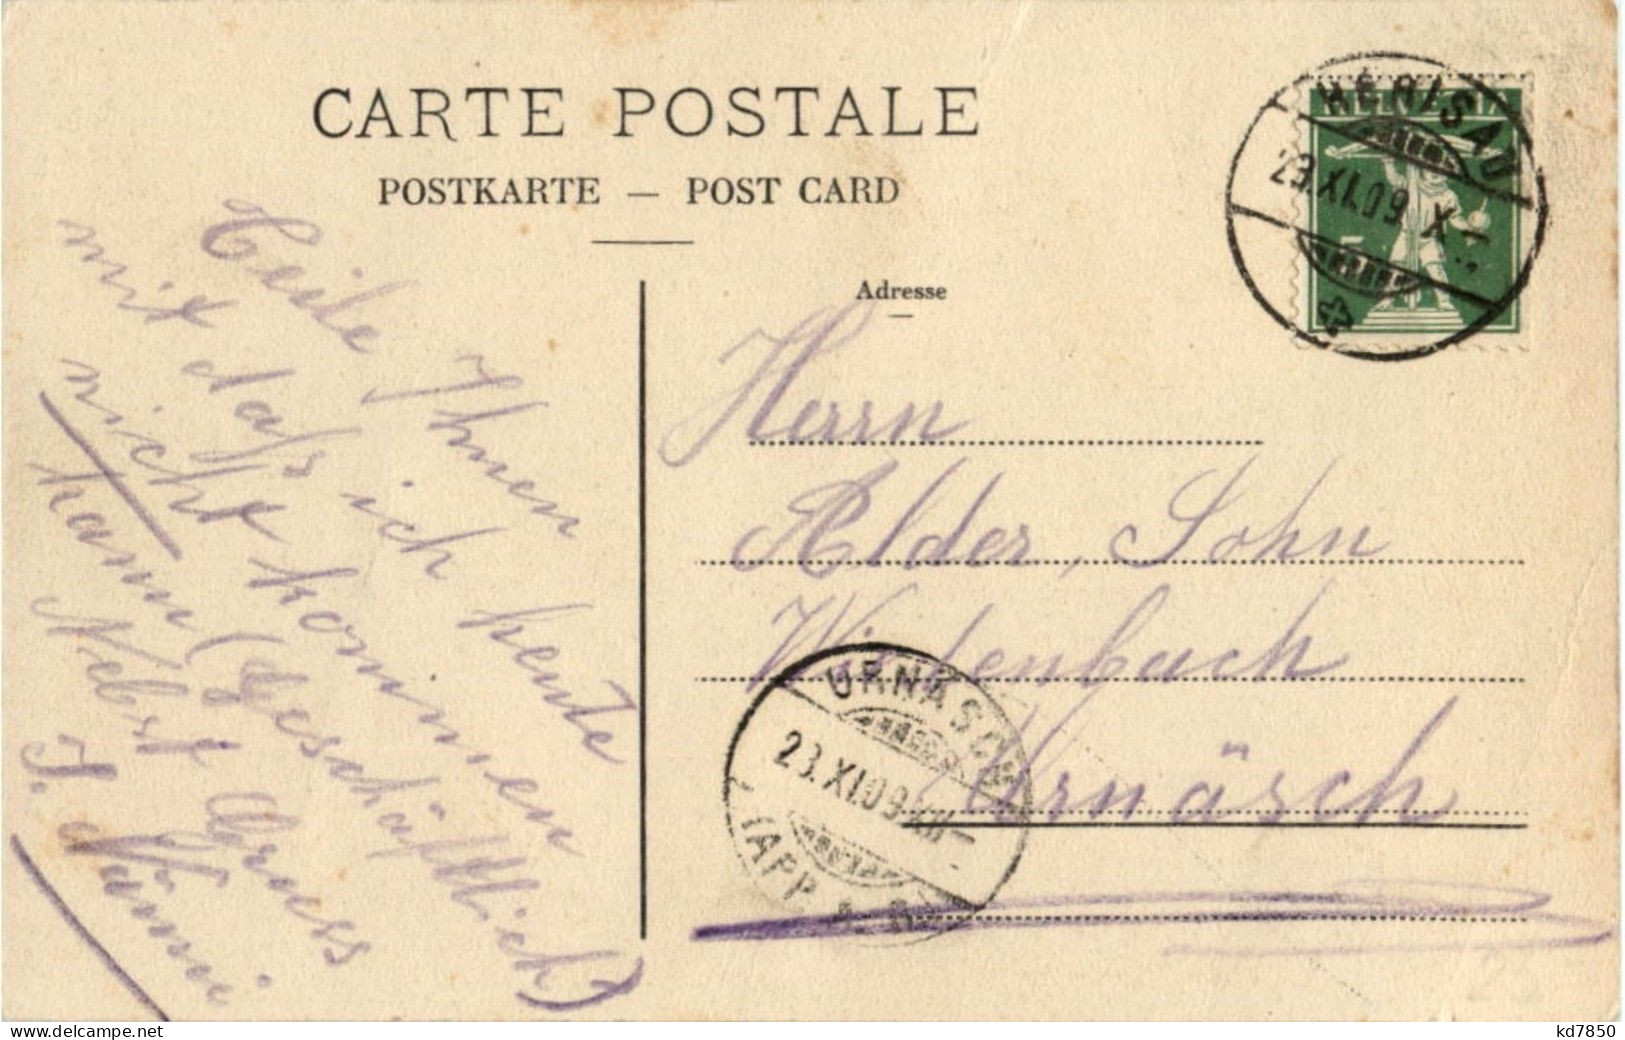 CARTE POSTALE
POSTKARTE — POST CARD
Adresse
HERISAU
23.XI.09 X
HELVETIA
5
Teile Ihnen
mit dass ich heute
nicht kommen
kann (Geschäftlich)
Nebst Gruss
J. Nänni
Herrn
Alder, Sohn
Urnäsch
URNÄSCH
23.XI.09
(APP. A. RH.)
delcampe.net
kd7850